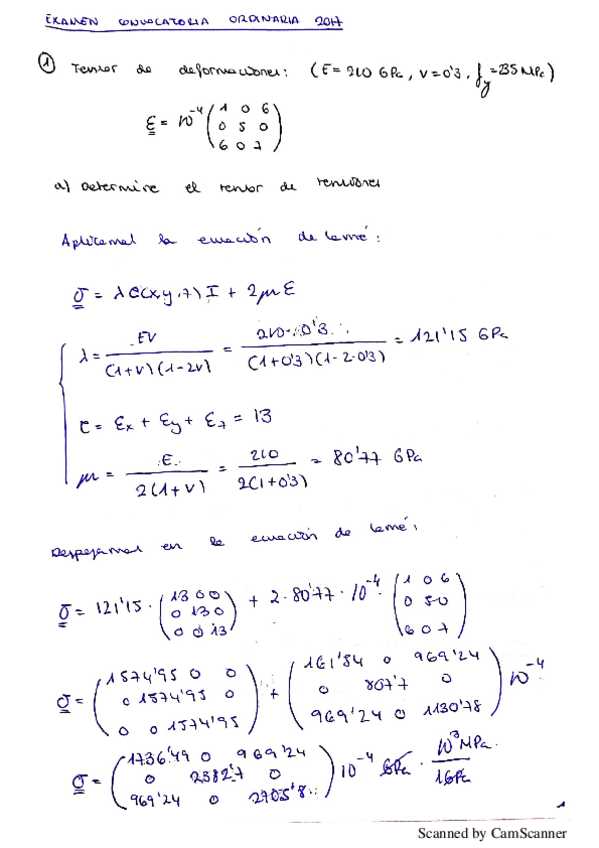 EXAMEN CONVOCATORIA ORDINARIA 2017
① Tensor de deformaciones: (E = 210 GPa, ν = 0'3, f_y = 235 MPa)
ε = 10^-4 (1 0 6
0 5 0
6 0 7)
a) Determine el tensor de tensiones
Aplicamos la ecuación de Lamé:
σ = λ e(x,y,z) I + 2μ ε
λ = Eν / ((1+ν)(1-2ν)) = 210·0'3 / ((1+0'3)(1-2·0'3)) = 121'15 GPa
e = εx + εy + εz = 13
μ = E / (2(1+ν)) = 210 / (2(1+0'3)) = 80'77 GPa
Despejamos en la ecuación de Lamé:
σ = 121'15 · (13 0 0
0 13 0
0 0 13) + 2·80'77·10^-4 (1 0 6
0 5 0
6 0 7)
σ = (1574'95 0 0
0 1574'95 0
0 0 1574'95) + (161'54 0 969'24
0 807'7 0
969'24 0 1130'78) 10^-4
σ = (1736'49 0 969'24
0 2382'7 0
969'24 0 2705'8) 10^-4 GPa · 10^3 MPa / 1GPa
1
Scanned by CamScanner